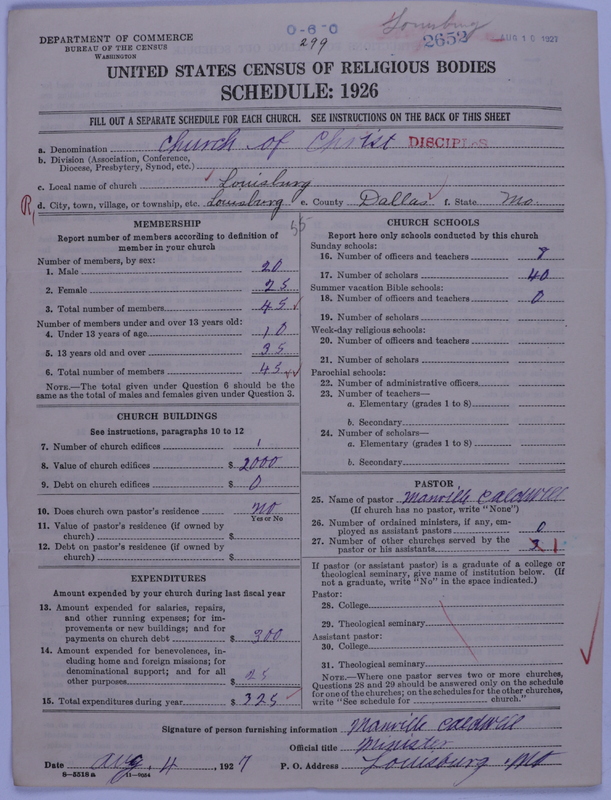 Louisburg
0-6-0
DEPARTMENT OF COMMERCE
BUREAU OF THE CENSUS
WASHINGTON
299
2652
AUG 10 1927
UNITED STATES CENSUS OF RELIGIOUS BODIES
SCHEDULE: 1926
FILL OUT A SEPARATE SCHEDULE FOR EACH CHURCH. SEE INSTRUCTIONS ON THE BACK OF THIS SHEET
a. Denomination Church of Christ DISCIPLES
b. Division (Association, Conference,
Diocese, Presbytery, Synod, etc.)
c. Local name of church Louisburg
R, d. City, town, village, or township, etc. Louisburg e. County Dallas f. State Mo.
MEMBERSHIP
55
Report number of members according to definition of
member in your church
Number of members, by sex:
1. Male 20
2. Female 25
3. Total number of members 45
Number of members under and over 13 years old:
4. Under 13 years of age 10
5. 13 years old and over 35
6. Total number of members 45
NOTE.—The total given under Question 6 should be the
same as the total of males and females given under Question 3.
CHURCH BUILDINGS
See instructions, paragraphs 10 to 12
7. Number of church edifices 1
8. Value of church edifices $ 2000
9. Debt on church edifices $ 0
10. Does church own pastor's residence? no
Yes or No
11. Value of pastor's residence (if owned by
church) $
12. Debt on pastor's residence (if owned by
church) $
EXPENDITURES
Amount expended by your church during last fiscal year
13. Amount expended for salaries, repairs,
and other running expenses; for im-
provements or new buildings; and for
payments on church debt $ 300
14. Amount expended for benevolences, in-
cluding home and foreign missions; for
denominational support; and for all
other purposes $ 25
15. Total expenditures during year $ 325
CHURCH SCHOOLS
Report here only schools conducted by this church
Sunday schools:
16. Number of officers and teachers 8
17. Number of scholars 40
Summer vacation Bible schools:
18. Number of officers and teachers 0
19. Number of scholars
Week-day religious schools:
20. Number of officers and teachers
21. Number of scholars
Parochial schools:
22. Number of administrative officers
23. Number of teachers—
a. Elementary (grades 1 to 8)
b. Secondary
24. Number of scholars—
a. Elementary (grades 1 to 8)
b. Secondary
PASTOR
25. Name of pastor Manville Caldwill
(If church has no pastor, write "None")
26. Number of ordained ministers, if any, em-
ployed as assistant pastors 0
27. Number of other churches served by the
pastor or his assistants 3 1
If pastor (or assistant pastor) is a graduate of a college or
theological seminary, give name of institution below. (If
not a graduate, write "No" in the space indicated.)
Pastor:
28. College
29. Theological seminary
Assistant pastor:
30. College
31. Theological seminary
NOTE.—Where one pastor serves two or more churches,
Questions 28 and 29 should be answered only on the schedule
for one of the churches; on the schedules for the other churches,
write "See schedule for church."
Signature of person furnishing information Manville Caldwill
Official title Minister
Date Aug 4, 1927 P. O. Address Louisburg Mo
8—5518a 11—9054